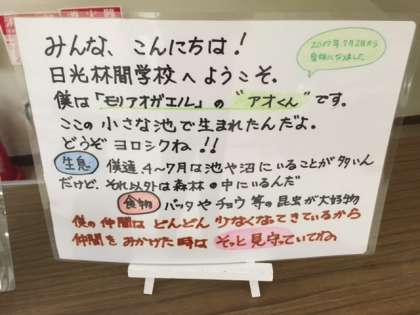 みんな、こんにちは!
2017年7月2日から
登場になりました
日光林間学校へようこそ。
僕は「モリアオガエル」の"アオくん"です。
ここの小さな池で生まれたんだよ。
どうぞヨロシクね!!
生息 僕達、4~7月は池や沼にいることが多いん
だけど、それ以外は森林の中にいるんだ
食物 バッタやチョウ等の昆虫が大好物
僕の仲間はどんどん少なくなってきているから
仲間をみかけた時はそっと見守っていてね。